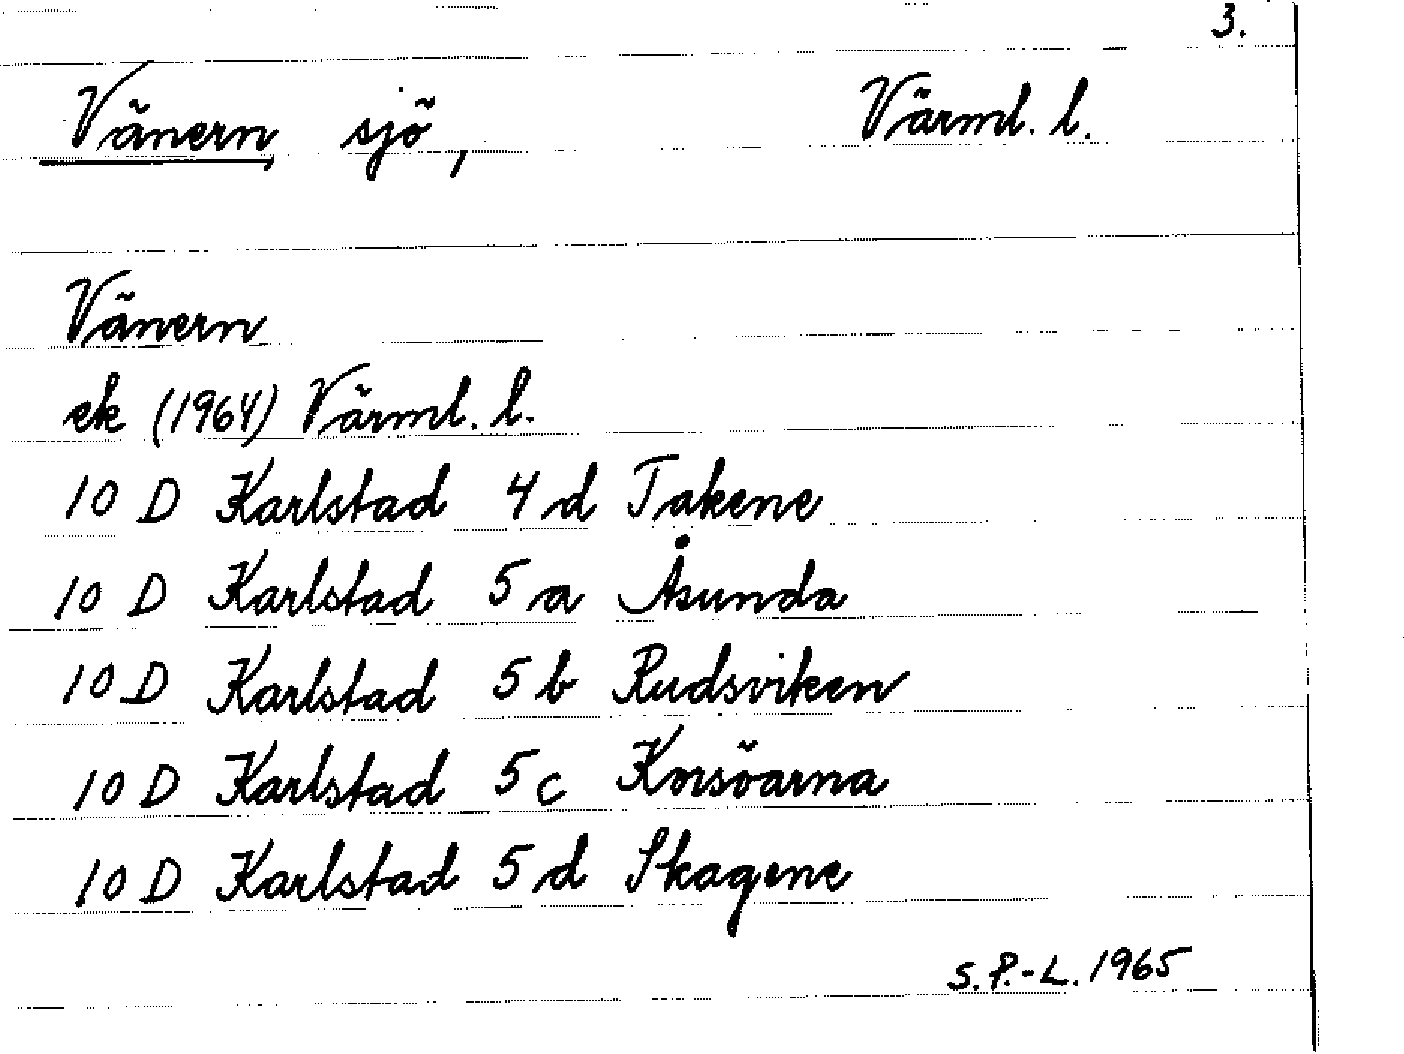 3.
Vänern, sjö, Värml. l.
Vänern
ek (1964) Värml. l.
10 D Karlstad 4 d Takene
10 D Karlstad 5 a Åsunda
10 D Karlstad 5 b Rudsviken
10 D Karlstad 5 c Korsöarna
10 D Karlstad 5 d Skagene
S.P.-L. 1965